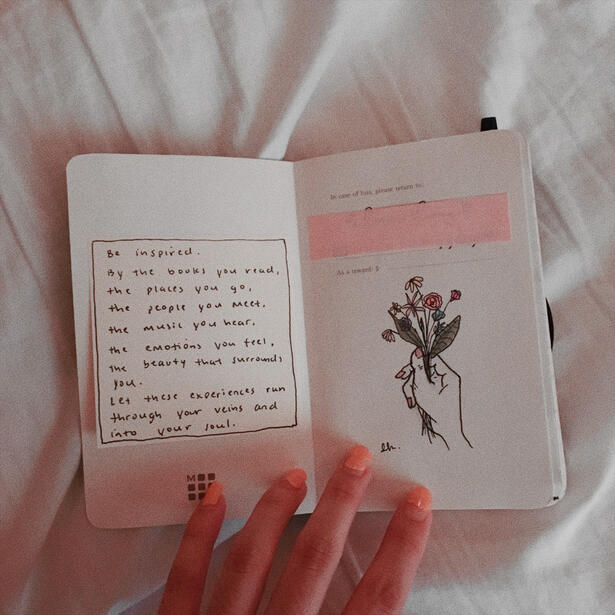 Be inspired.
By the books you read,
the places you go,
the people you meet,
the music you hear,
the emotions you feel,
the beauty that surrounds
you.
Let these experiences run
through your veins and
into your soul.
M
In case of loss, please return to:
As a reward: $